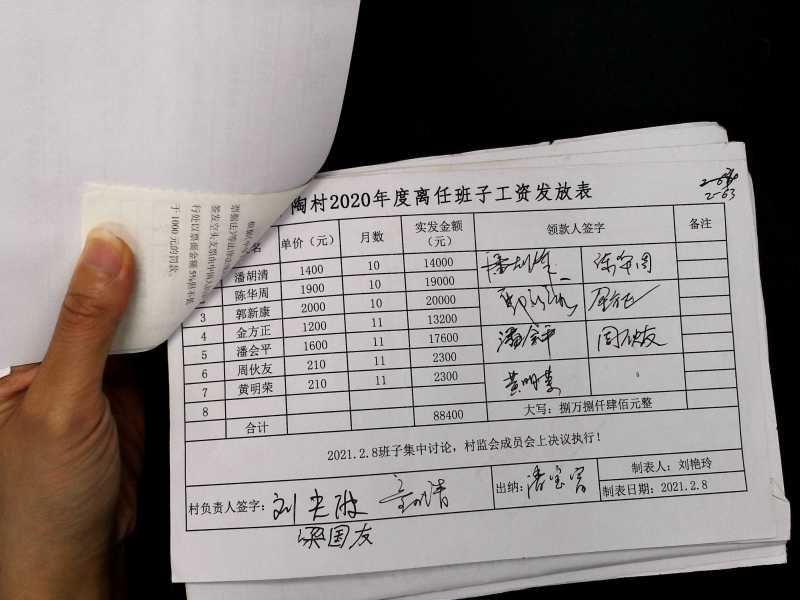 陶村2020年度离任班子工资发放表
2-63
名 单价（元） 月数 实发金额（元） 领款人签字 备注
潘胡清 1400 10 14000
陈华周 1900 10 19000
3 郭新康 2000 10 20000
4 金方正 1200 11 13200
5 潘会平 1600 11 17600 潘会平 周伙友
6 周伙友 210 11 2300
7 黄明荣 210 11 2300 黄明荣
8
合计 88400 大写：捌万捌仟肆佰元整
2021.2.8班子集中讨论，村监会成员会上决议执行！
村负责人签字： 出纳： 制表人：刘艳玲
制表日期：2021.2.8
梁国友
签发空头支票
行处以票面金额5%但不低
于1000元的罚款。